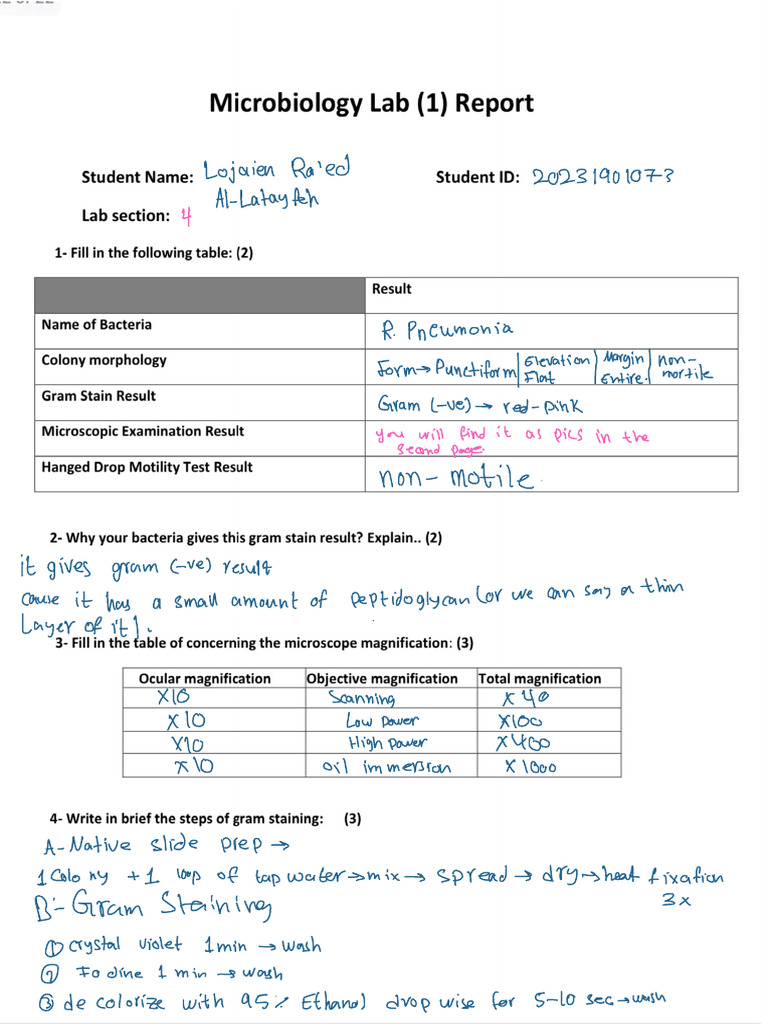 Microbiology Lab (1) Report
Student Name: Lojaien Ra'ed Student ID: 20231901073
Al-Latayfeh
Lab section: 4
1- Fill in the following table: (2)
Result
Name of Bacteria R. Pneumonia
Colony morphology Form → Punctiform | Elevation Flat | Margin Entire. | non-mortile
Gram Stain Result Gram (-ve) → red-pink
Microscopic Examination Result you will find it as pics in the second page.
Hanged Drop Motility Test Result non-motile.
2- Why your bacteria gives this gram stain result? Explain.. (2)
it gives gram (-ve) result
cause it has a small amount of peptidoglycan (or we can say a thin
Layer of it).
3- Fill in the table of concerning the microscope magnification: (3)
Ocular magnification Objective magnification Total magnification
X10 Scanning X 40
X10 Low Power X100
X10 High power X 400
X10 oil immersion X 1000
4- Write in brief the steps of gram staining: (3)
A- Native slide prep →
1 Colony + 1 loop of tap water → mix → spread → dry → heat fixation
3x
B:- Gram Staining
① crystal violet 1 min → wash
② Iodine 1 min → wash
③ de colorize with 95% Ethanol drop wise for 5-10 sec → wash